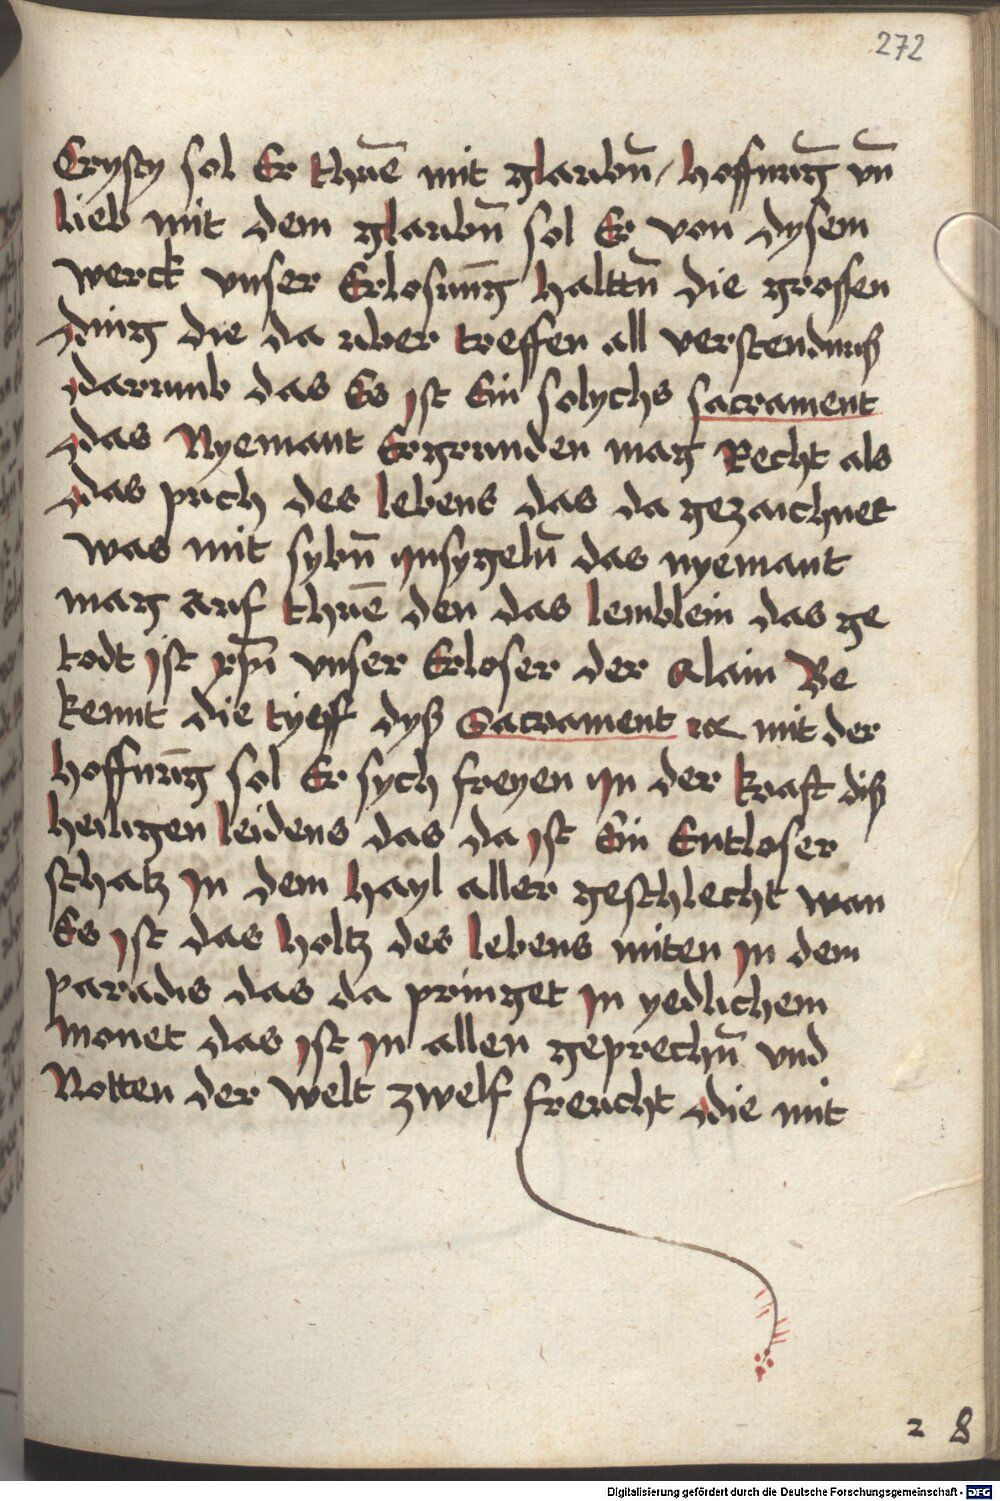 272
Crysty sol Er thuē mit glaubn̄ / hoffnūg vn̄
lieb mit dem glaubn̄ sol Er von dysem
werck vnser Erlosūng halttn̄ die grossen
ding die da uber treffen all verstendnuß
darumb das Es ist Ein solychs sacrament
das Nyemant Ergrunden mag Recht als
das puch des lebens das da gezaichnet
was mit sybn̄ jnsygeln̄ das nyemant
mag auf thuē den das lemblein das ge
todt ist xp̄i vnser Erloser der Alain Be
kennt die tyeff dyß Sacrament mit der
hoffnūg sol Er sych freyen jn der kraft diß
heiligen leidens das da ist Ein Entloser
schatz jn dem hayl aller geschlecht wan
Es ist das holtz des lebens miten jn dem
paradis das da pringet jn yedlichem
monet das ist jn allen geprechn̄ vnd
Notten der welt zwelf freucht die mit
2 8
Digitalisierung gefördert durch die Deutsche Forschungsgemeinschaft - DFG